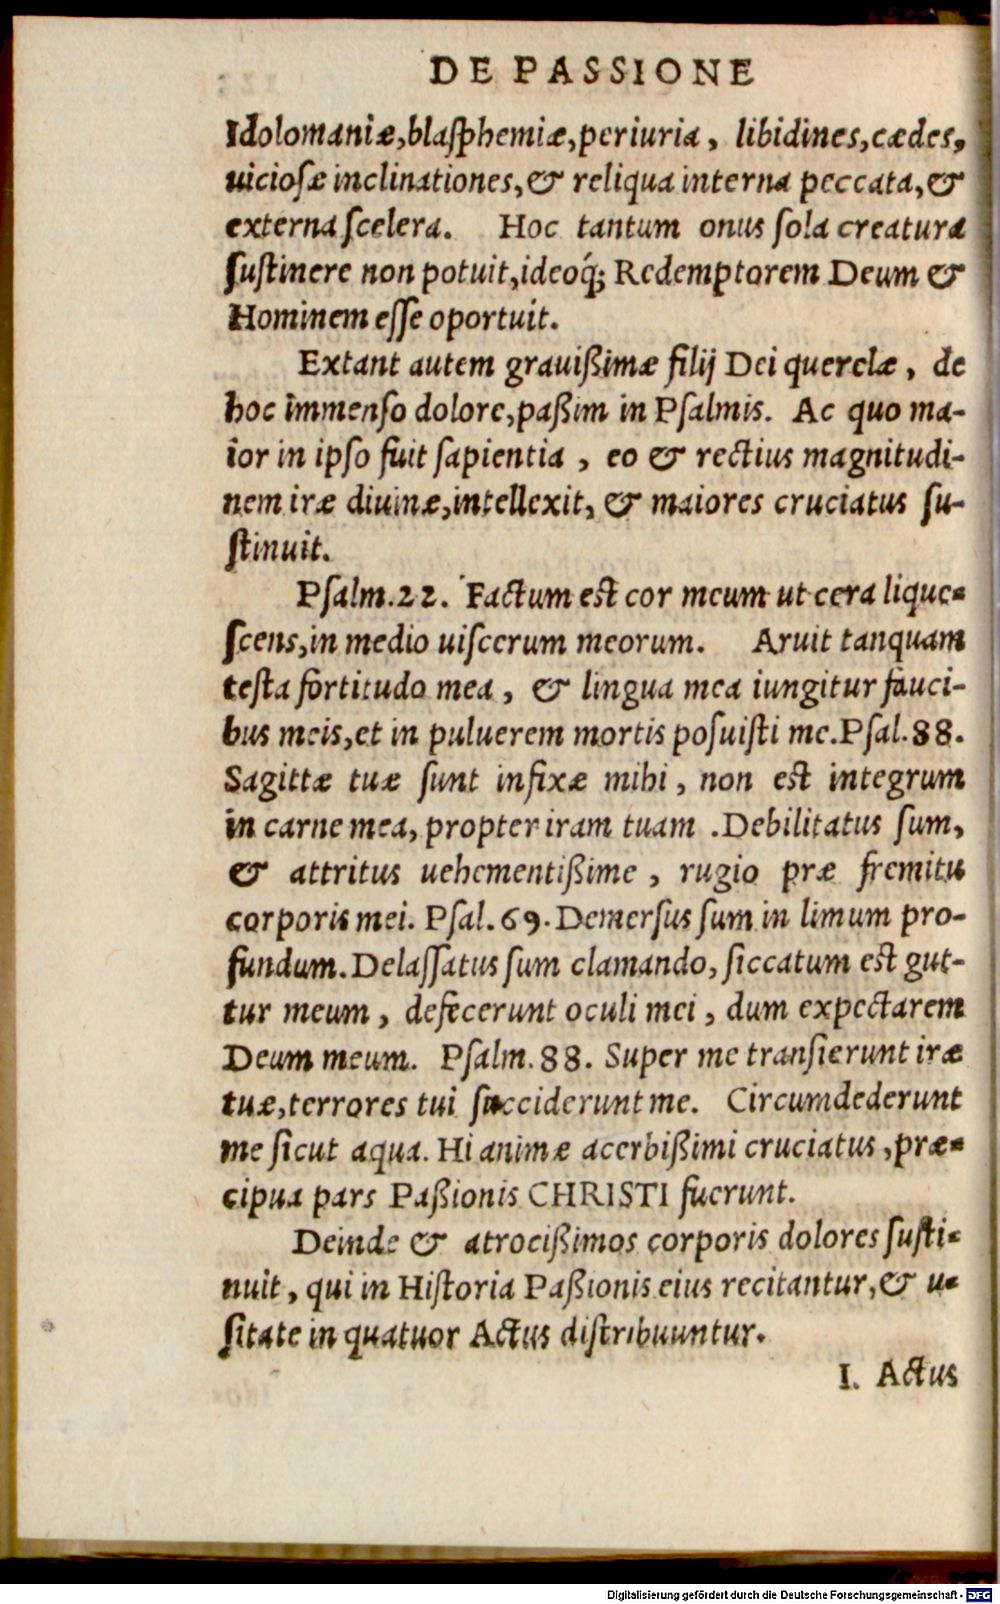 DE PASSIONE
Idolomaniæ, blasphemiæ, periuria, libidines, cædes,
uiciosæ inclinationes, & reliqua interna peccata, &
externa scelera. Hoc tantum onus sola creatura
sustinere non potuit, ideoq́; Redemptorem Deum &
Hominem esse oportuit.
Extant autem grauißimæ filij Dei querelæ, de
hoc immenso dolore, paßim in Psalmis. Ac quo ma-
ior in ipso fuit sapientia, eo & rectius magnitudi-
nem iræ diuinæ, intellexit, & maiores cruciatus su-
stinuit.
Psalm. 22. Factum est cor meum ut cera lique-
scens, in medio uiscerum meorum. Aruit tanquam
testa fortitudo mea, & lingua mea iungitur fauci-
bus meis, et in puluerem mortis posuisti me. Psal. 88.
Sagittæ tuæ sunt infixæ mihi, non est integrum
in carne mea, propter iram tuam. Debilitatus sum,
& attritus uehementißime, rugio præ fremitu
corporis mei. Psal. 69. Demersus sum in limum pro-
fundum. Delassatus sum clamando, siccatum est gut-
tur meum, defecerunt oculi mei, dum expectarem
Deum meum. Psalm. 88. Super me transierunt iræ
tuæ, terrores tui succiderunt me. Circumdederunt
me sicut aqua. Hi animæ acerbißimi cruciatus, præ-
cipua pars Paßionis CHRISTI fuerunt.
Deinde & atrocißimos corporis dolores susti-
nuit, qui in Historia Paßionis eius recitantur, & u-
sitate in quatuor Actus distribuuntur.
I. Actus
Digitalisierung gefördert durch die Deutsche Forschungsgemeinschaft - DFG